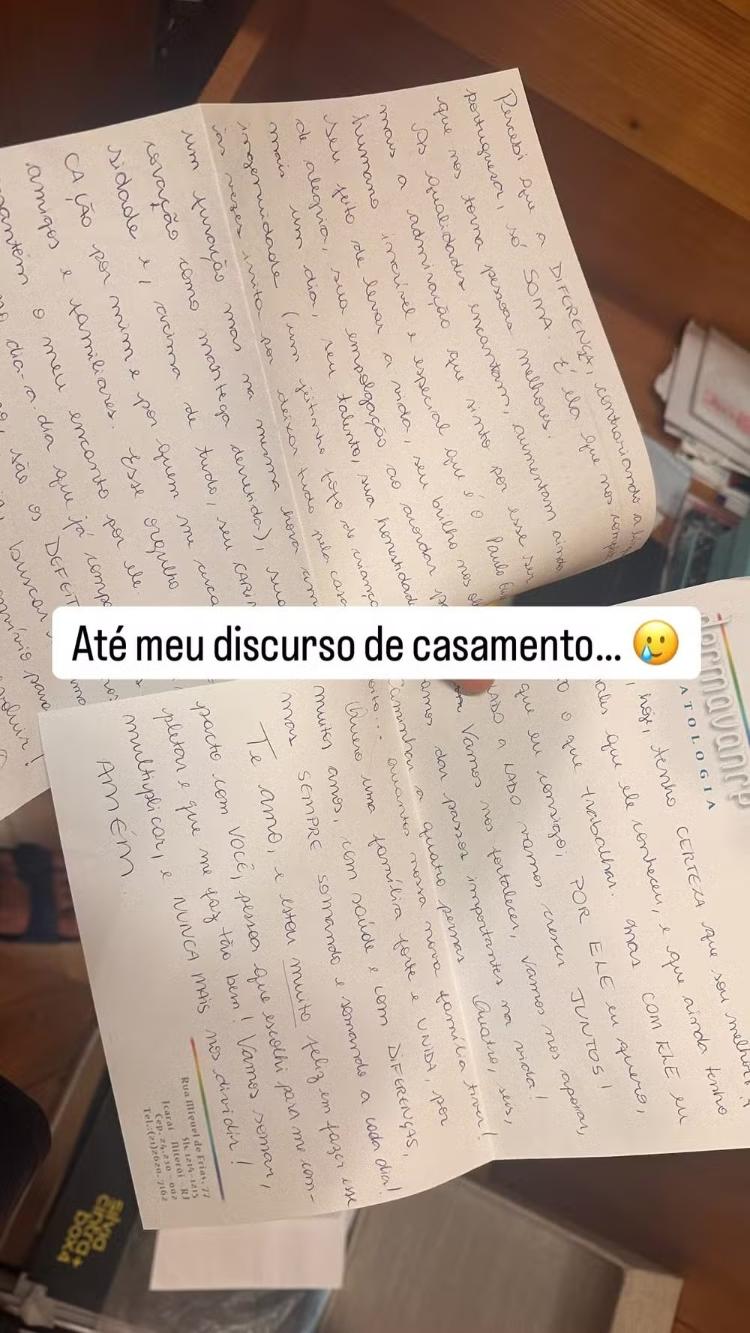 Percebi que a DIFERENÇA, contrariando a
portuguesa, só SOMA. É ela que nos
que nos torna pessoas melhores.
As qualidades encantam, aumentam ainda
mais a admiração que sinto por esse ser
humano incrível e especial que é o Paulo
seu jeito de levar a vida, seu brilho nos
de alegria, sua empolgação ao acordar
mais um dia, seu talento, sua honestidade
ingenuidade (um jeitinho fofo de criança
às vezes irrita por deixar tudo pela casa
um furacão mas na mesma hora com
coração como manteiga derretida),
sidade e, acima de tudo, seu
CAÇÃO por mim e por quem me
amigos e familiares. Esse orgulho
mantém o meu encanto por ele
dia-a-dia que já
são os
buscar
Até meu discurso de casamento... 🥲
ATOLOGIA
hoje, tenho CERTEZA que sou melhor
que ele conheceu, e que ainda tenho
o que trabalhar. Mas COM ELE eu
que eu consigo, POR ELE eu quero,
LADO a LADO vamos crescer JUNTOS!
Vamos nos fortalecer, vamos nos apoiar,
vamos dar passos importantes na vida!
caminhar a quatro pernas. Quatro, seis,
oito... quantos nossa nova família tiver!
Quero uma família forte e UNIDA, por
muitos anos, com saúde e com DIFERENÇAS,
mas SEMPRE somando e somando a cada dia!
Te amo, e estou muito feliz em fazer esse
pacto com VOCÊ, pessoa que escolhi para me com-
pletar e que me faz tão bem! Vamos somar,
multiplicar, e NUNCA MAIS nos dividir!
AMÉM
Rua Miguel de Frias, 77
Sls 1214-1215
Icaraí - Niterói - RJ
Cep. 24.220-002
Tel.: (21) 2620-7162